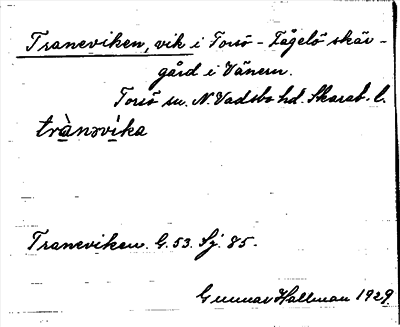 Traneviken, vik i Torsö - Fågelö skär-
gård i Vänern.
Torsö sn. N. Vadsbo hd. Skarab. l.
trànəvíka
Traneviken. G. 53. Sj. 85.
Gunnar Hallman 1929.